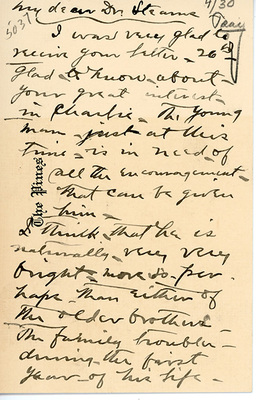 My dear Dr. Stearns
4/30
5037
I was very glad to
receive your letter - 26th
glad to know about -
your great interest -
in Charlie - The young
man - just at this
time - is in need of
all the encouragement -
that can be given
him -
The Pines
I think that he is
naturally - very very
bright - more so - per-
haps - than either of
the older brothers
The family troubles -
during the first
year - of his life -